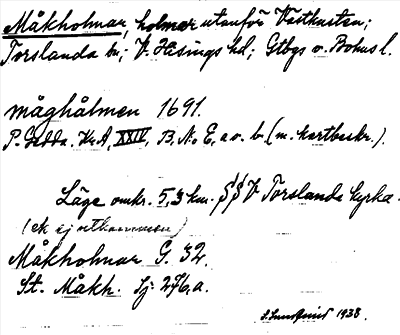 Måkholmar, holmar utanför Västkusten;
Torslanda sn; V. Hisings hd; Gtbgs o. Bohus l.
måghålmen 1691.
P. Gedda. Kr.A, XXIV, B, N:o E, a o. b. (m. kartbeskr.).
Läge omkr. 5,3 km. V Torslanda kyrka.
(ek. ej utkommen)
Måkholmar G. 32.
St. Måkh. Sj 276,a.
1938.